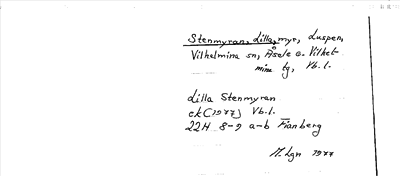 Stenmyran, Lilla, myr, Luspen,
Vilhelmina sn, Åsele o. Vilhel-
mina tg, Vb.l.
Lilla Stenmyran
ek (1977) Vb.l.
22H 8-9 a-b Fianberg
M. Lgn 1977